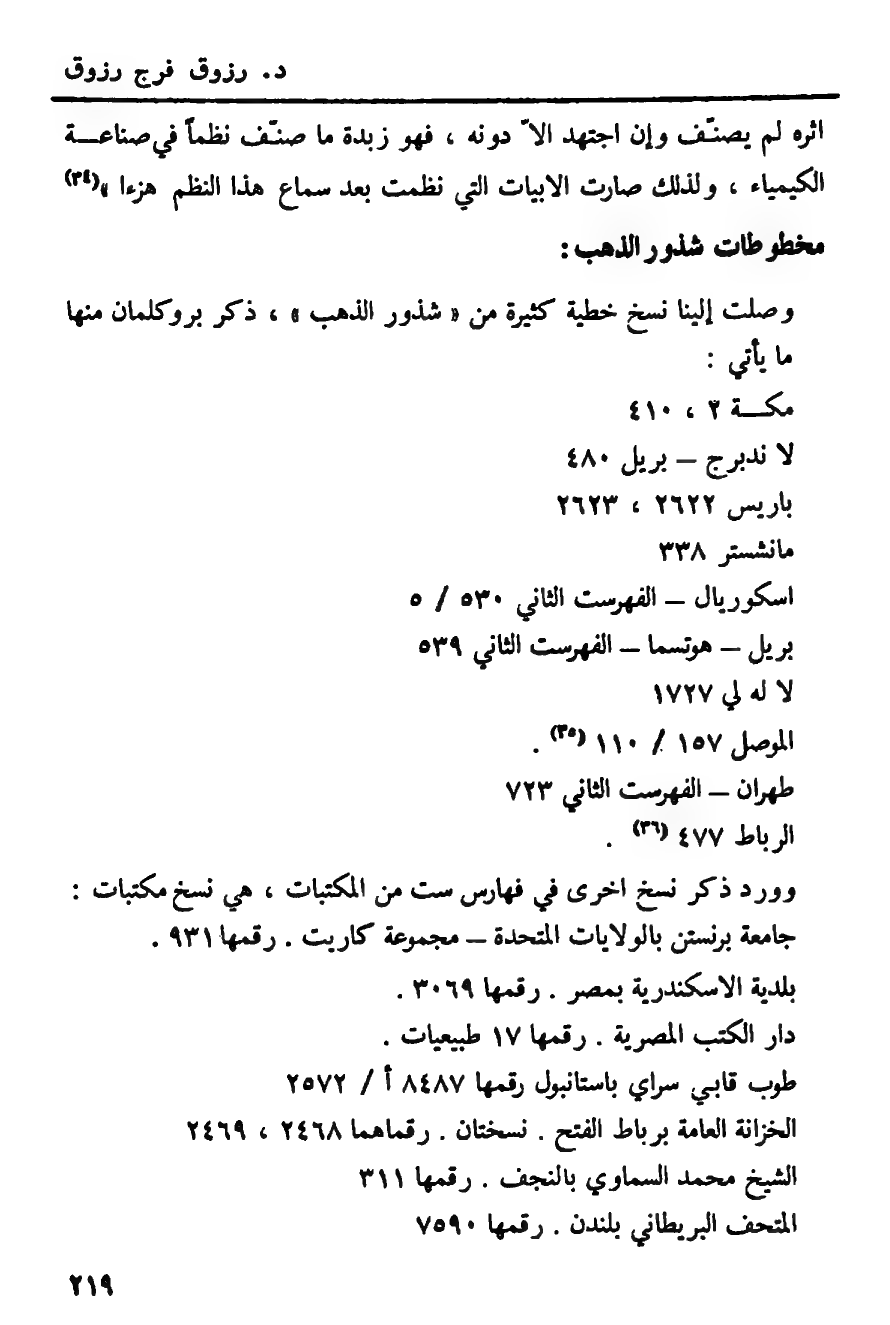 د. رزوق فرج رزوق
اثره لم يصنّف وإن اجتهد الاّ دونه ، فهو زبدة ما صنّف نظماً في صناعـــة
الكيمياء ، ولذلك صارت الابيات التي نظمت بعد سماع هذا النظم هزءا »(٣٤)
مخطوطات شذور الذهب :
وصلت إلينا نسخ خطية كثيرة من « شذور الذهب » ، ذكر بروكلمان منها
ما يأتي :
مكـــة ٢ ، ٤١٠
لا ندبرج – بريل ٤٨٠
باريس ٢٦٢٢ ، ٢٦٢٣
مانشستر ٣٣٨
اسكوريال – الفهرست الثاني ٥٣٠ / ٥
بريل – هوتسما – الفهرست الثاني ٥٣٩
لا له لي ١٧٢٧
الموصل ١٥٧ / ١١٠ (٣٥) .
طهران – الفهرست الثاني ٧٢٣
الرباط ٤٧٧ (٣٦) .
وورد ذكر نسخ اخرى في فهارس ست من المكتبات ، هي نسخ مكتبات :
جامعة برنستن بالولايات المتحدة – مجموعة كاريت . رقمها ٩٣١ .
بلدية الاسكندرية بمصر . رقمها ٣٠٦٩ .
دار الكتب المصرية . رقمها ١٧ طبيعيات .
طوب قابي سراي باستانبول رقمها ٨٤٨٧ أ / ٢٥٧٢
الخزانة العامة برباط الفتح . نسختان . رقماهما ٢٤٦٨ ، ٢٤٦٩
الشيخ محمد السماوي بالنجف . رقمها ٣١١
المتحف البريطاني بلندن . رقمها ٧٥٩٠
٢١٩